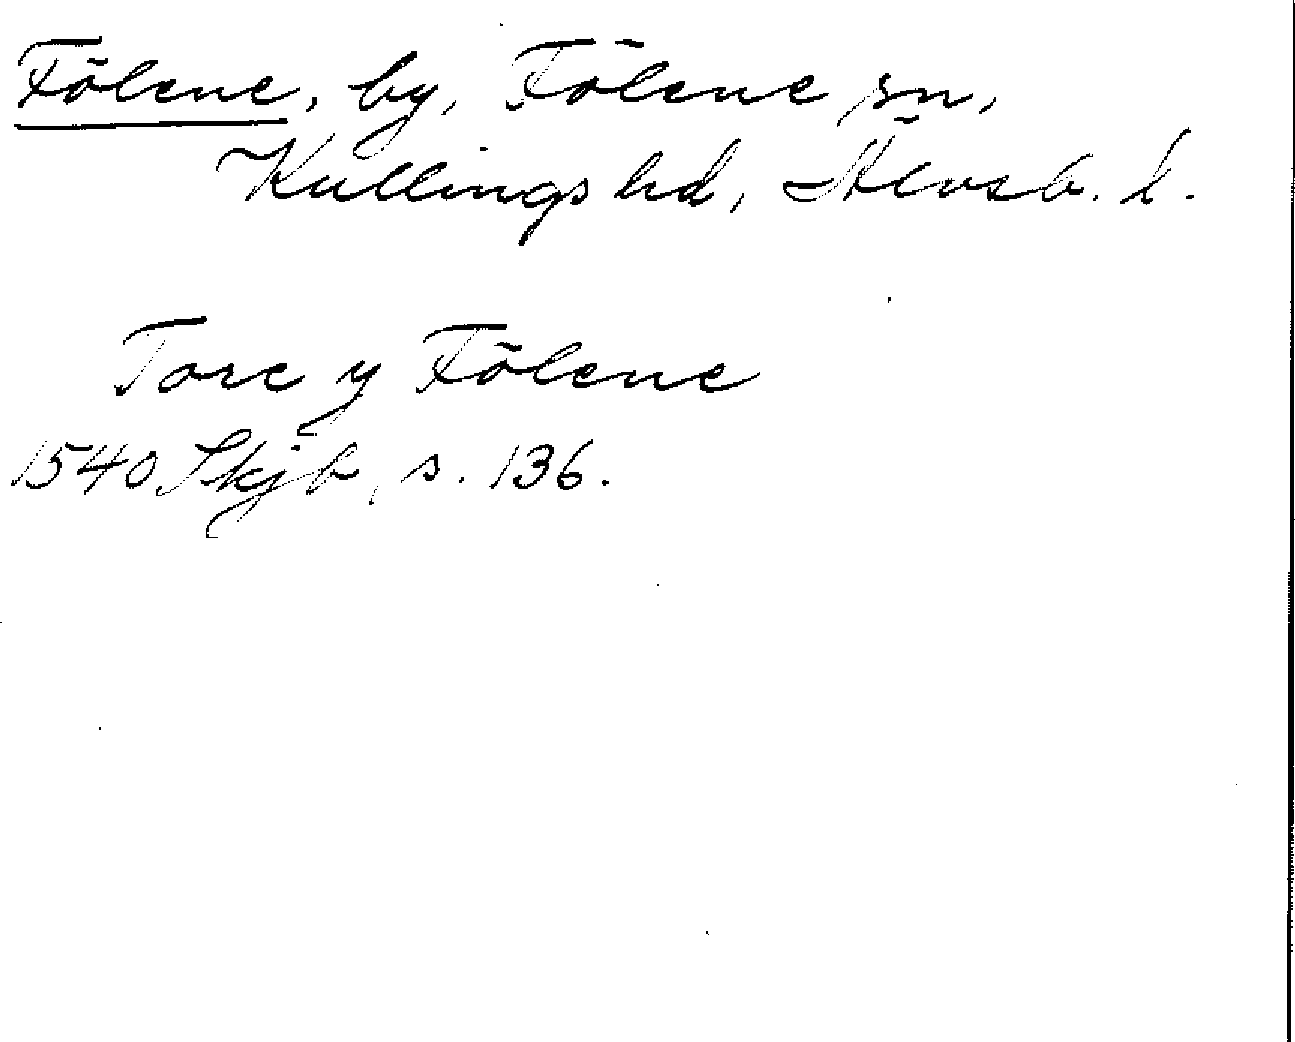 Fölene, by, Fölene sn,
Kullings hd, Älvsb. l.
Tore y Fölene
1540 Skjb, s. 136.